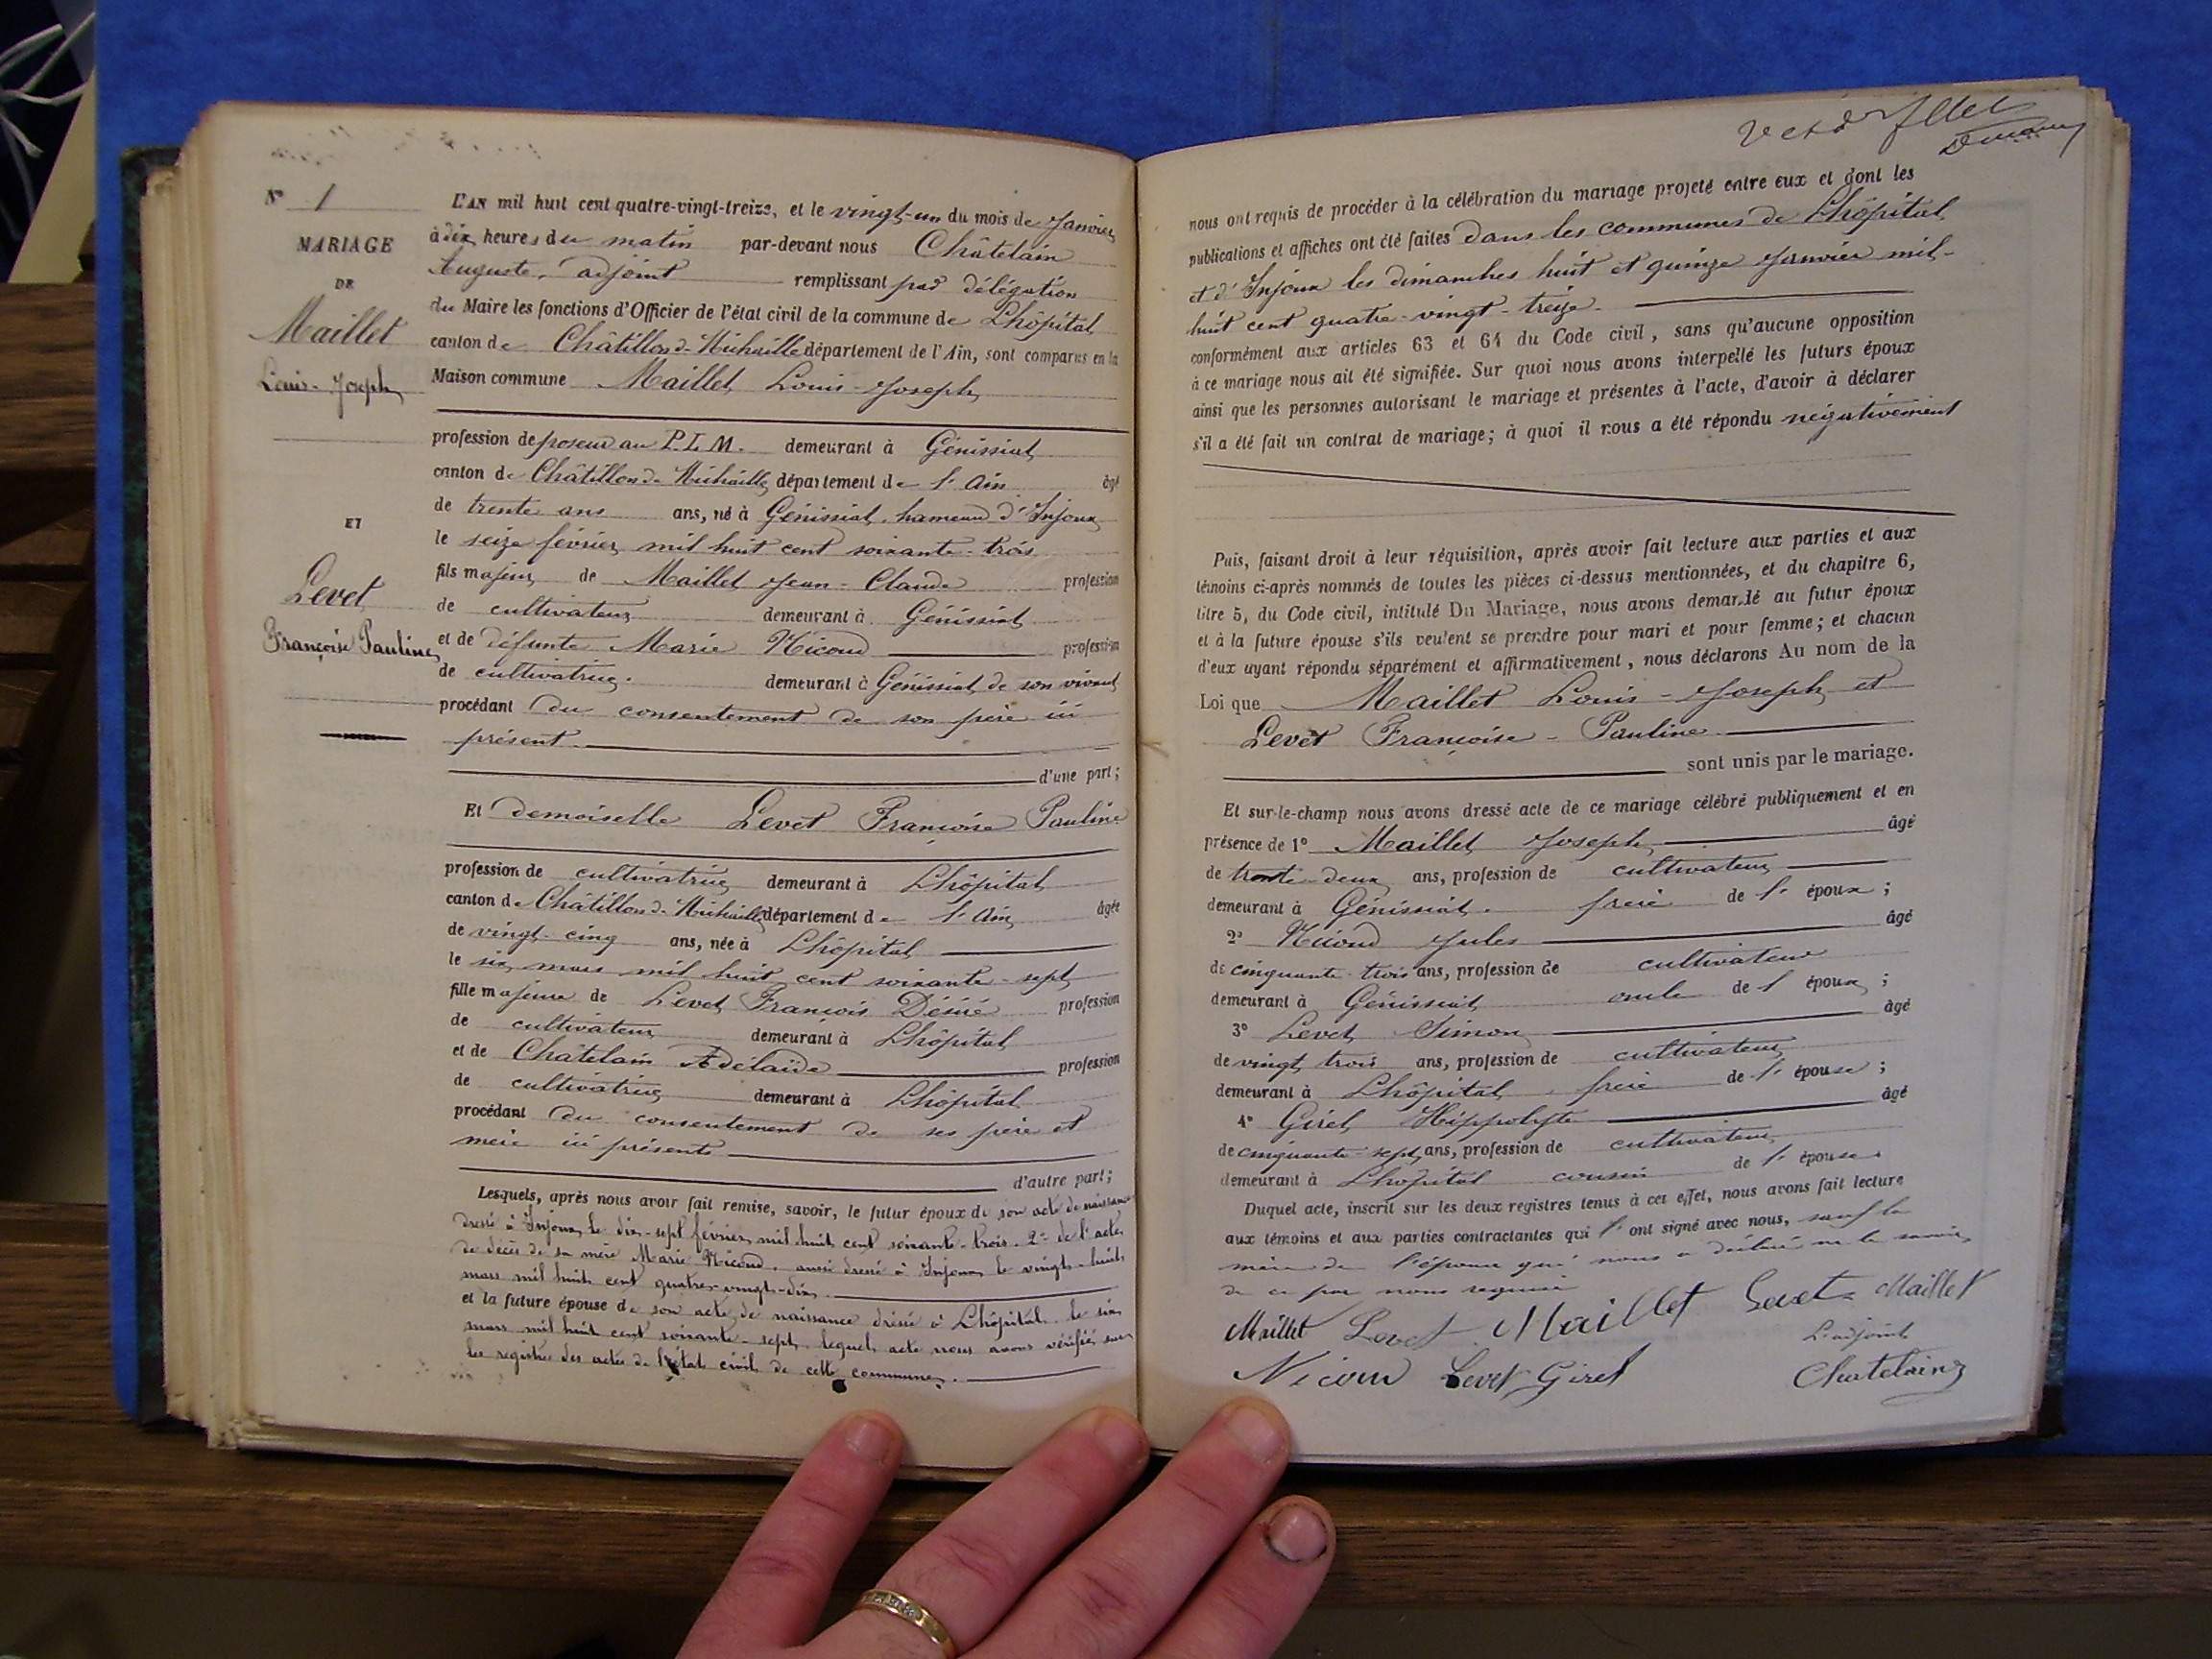 N° 1
MARIAGE
DE
Maillet
Louis-Joseph
ET
Levet
Françoise Pauline
L'AN mil huit cent quatre-vingt-treize, et le vingt-un du mois de Janvier
à dix heures du matin par-devant nous Châtelain
Auguste, adjoint remplissant par délégation
du Maire les fonctions d'Officier de l'état civil de la commune de Lhôpital
canton de Châtillon-de-Michaille département de l'Ain, sont comparus en la
Maison commune Maillet Louis-Joseph
profession de poseur au P.L.M. demeurant à Génissiat
canton de Châtillon-de-Michaille département de l'Ain âgé
de trente ans ans, né à Génissiat, hameau d'Injoux
le seize février mil huit cent soixante-trois
fils majeur de Maillet Jean-Claude profession
de cultivateur demeurant à Génissiat
et de défunte Marie Nicoud profession
de cultivatrice. demeurant à Génissiat de son vivant
procédant du consentement de son père ici
présent.
d'une part;
Et demoiselle Levet Françoise Pauline
profession de cultivatrice demeurant à Lhôpital
canton de Châtillon-de-Michaille département de l'Ain âgée
de vingt-cinq ans, née à Lhôpital
le six mars mil huit cent soixante-sept
fille majeure de Levet François Désiré profession
de cultivateur demeurant à Lhôpital
et de Châtelain Adélaïde profession
de cultivatrice demeurant à Lhôpital
procédant du consentement de ses père et
mère ici présents
d'autre part;
Lesquels, après nous avoir fait remise, savoir, le futur époux de son acte de naissance
dressé à Injoux le dix-sept février mil huit cent soixante-trois. 2° de l'acte
de décès de sa mère Marie Nicoud, aussi dressé à Injoux le vingt-huit
mars mil huit cent quatre-vingt-dix.
et la future épouse de son acte de naissance dressé à Lhôpital le six
mars mil huit cent soixante-sept, lequel acte nous avons vérifié sur
les registres des actes de l'état civil de cette commune.
nous ont requis de procéder à la célébration du mariage projeté entre eux et dont les
publications et affiches ont été faites dans les communes de Lhôpital
et d'Injoux les dimanches huit et quinze Janvier mil-
huit cent quatre-vingt-treize.
conformément aux articles 63 et 64 du Code civil, sans qu'aucune opposition
à ce mariage nous ait été signifiée. Sur quoi nous avons interpellé les futurs époux
ainsi que les personnes autorisant le mariage et présentes à l'acte, d'avoir à déclarer
s'il a été fait un contrat de mariage; à quoi il nous a été répondu négativement
Puis, faisant droit à leur réquisition, après avoir fait lecture aux parties et aux
témoins ci-après nommés de toutes les pièces ci-dessus mentionnées, et du chapitre 6,
titre 5, du Code civil, intitulé Du Mariage, nous avons demandé au futur époux
et à la future épouse s'ils veulent se prendre pour mari et pour femme; et chacun
d'eux ayant répondu séparément et affirmativement, nous déclarons Au nom de la
Loi que Maillet Louis-Joseph et
Levet Françoise-Pauline
sont unis par le mariage.
Et sur-le-champ nous avons dressé acte de ce mariage célébré publiquement et en
présence de 1° Maillet Joseph âgé
de trente-deux ans, profession de cultivateur
demeurant à Génissiat. frère de l'époux;
2° Nicoud Jules âgé
de cinquante-trois ans, profession de cultivateur
demeurant à Génissiat oncle de l'époux;
3° Levet Simon âgé
de vingt trois ans, profession de cultivateur
demeurant à Lhôpital, frère de l'épouse;
4° Girel Hippolyte âgé
de cinquante-sept ans, profession de cultivateur
demeurant à Lhôpital cousin de l'épouse
Duquel acte, inscrit sur les deux registres tenus à cet effet, nous avons fait lecture
aux témoins et aux parties contractantes qui l'ont signé avec nous, sauf la
mère de l'épouse qui nous a déclaré ne le savoir
de ce par nous requise
Maillet Levet Maillet Levet Maillet
L'adjoint
Nicoud Levet Girel Chatelain